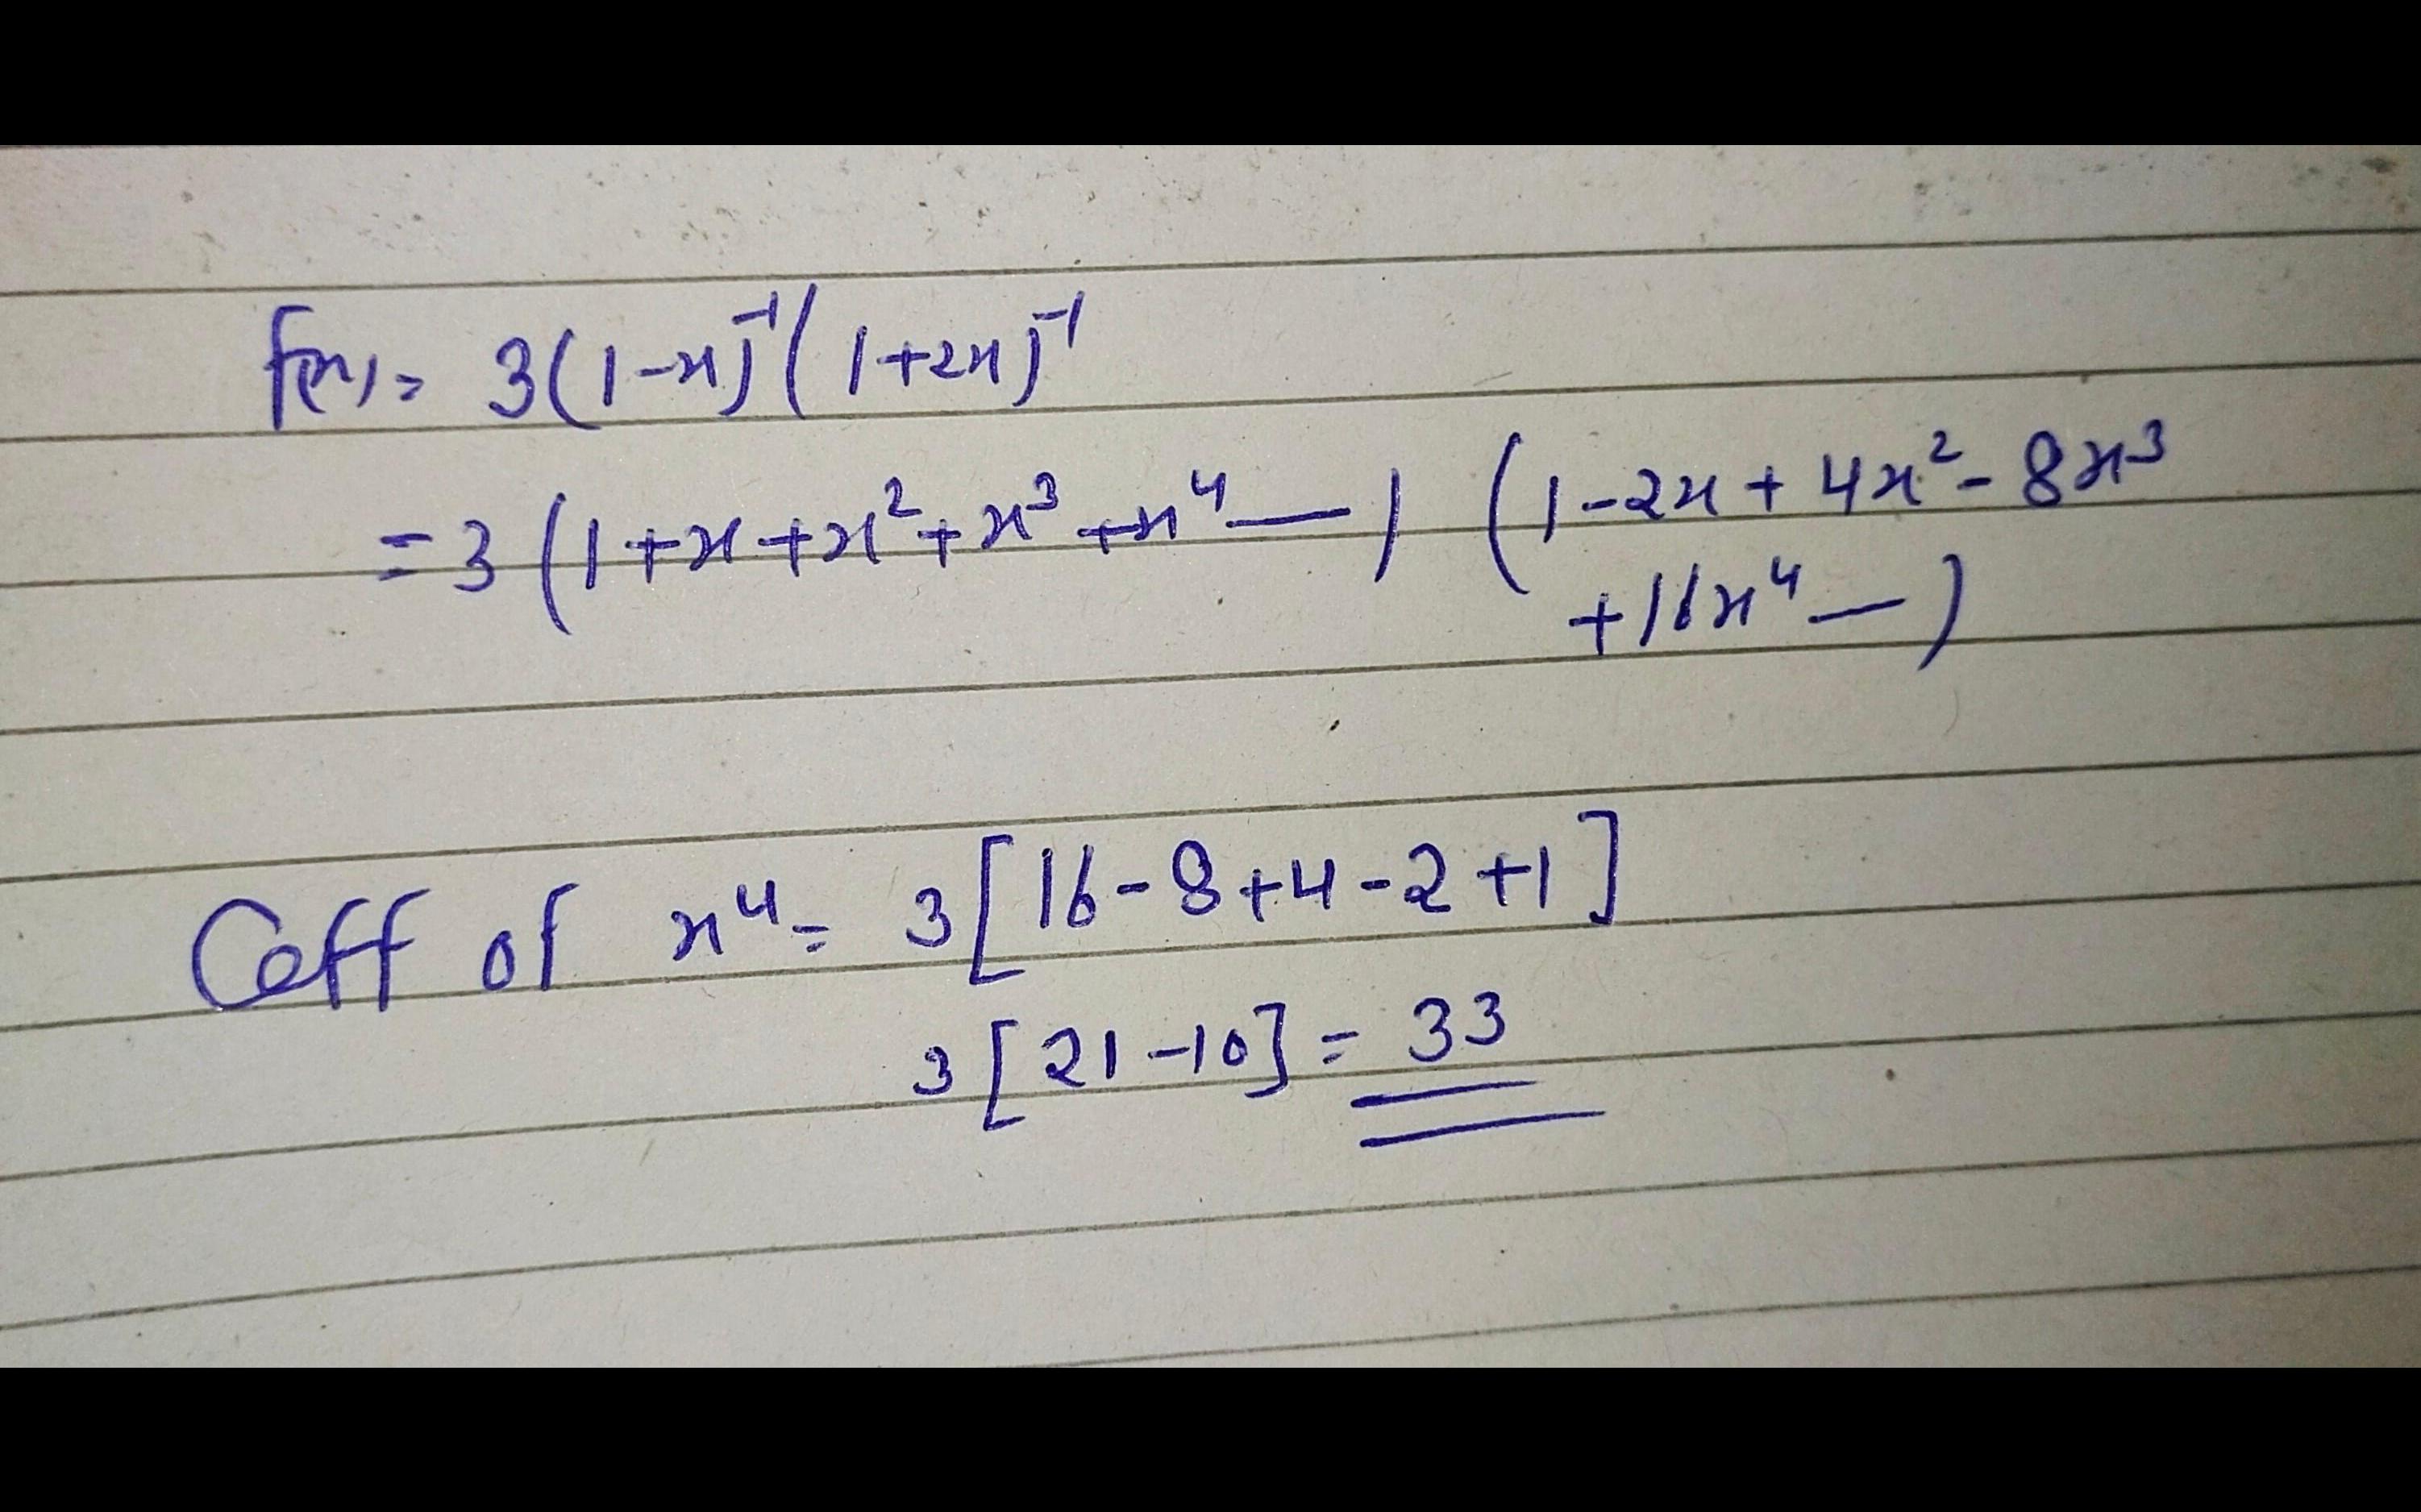 f(x) = 3(1-x)⁻¹(1+2x)⁻¹
= 3(1+x+x²+x³+x⁴—) (1-2x+4x²-8x³
+16x⁴—)
Coeff of x⁴ = 3[16-8+4-2+1]
3[21-10] = 33